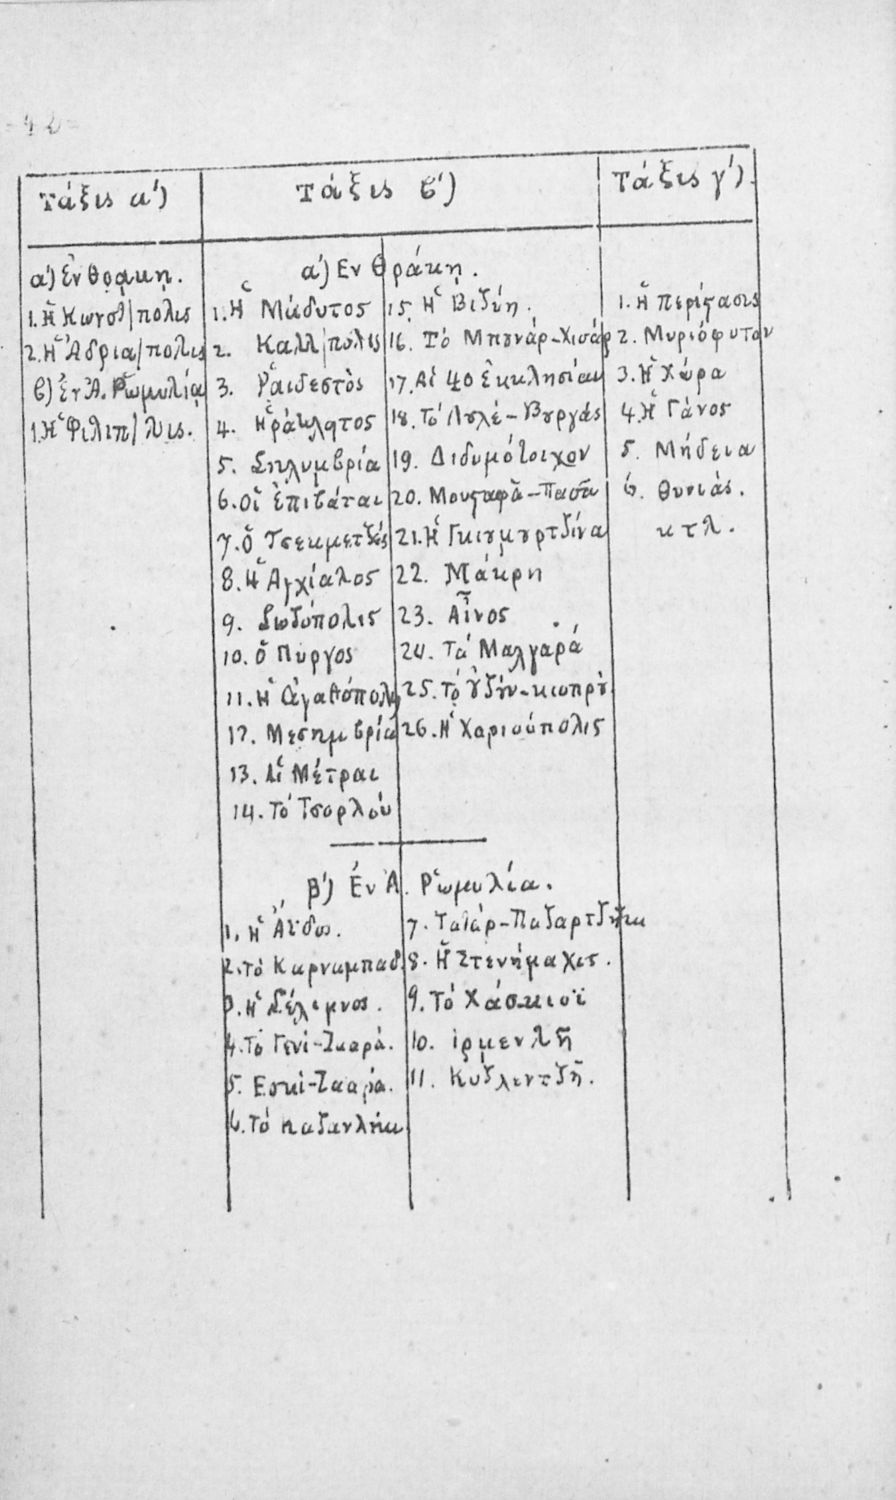 Τάξις α')
α') Ἐν Θρᾴκῃ.
1. Ἡ Κωνσ)πολις
2. Ἡ Ἀδρια)πολις
β) Ἐν Ἀ. Ῥωμυλίᾳ
1. Ἡ Φιλιπ)λις.
Τάξις β')
α') Ἐν Θράκῃ.
1. Ἡ Μάδυτος
2. Καλλ)πολις
3. Ῥαιδεστὸς
4. Ἡράκλητος
5. Σηλυμβρία
6. Οἱ Ἐπιβάται
7. Ὁ Τσεκμετζές
8. Ἡ Ἀγχίαλος
9. Σωζόπολις
10. Ὁ Πύργος
11. Ἡ Ἀγαθόπολις
12. Μεσημβρία
13. Αἱ Μέτραι
14. Τὸ Τσορλού
15. Ἡ Βιζύη.
16. Τὸ Μπουνάρ-Χισάρ
17. Αἱ 40 Ἐκκλησίαι
18. Τὸ Λουλέ-Βουργάς
19. Διδυμότοιχον
20. Μουσταφᾶ-Πασᾶ
21. Ἡ Γκιουμουρτζίνα
22. Μάκρη
23. Αἶνος
24. Τὰ Μάλγαρά
25. Τὸ Οὐζούν-κιοπρού
26. Ἡ Χαριούπολις
β') Ἐν Ἀ. Ῥωμυλίᾳ.
1. Ἡ Ἀΰδος.
2. Τὸ Καρναμπάδ.
3. Ἡ Σέλιμνος.
4. Τὸ Γενί-Ζααρά.
5. Εσκί-Ζααρά.
6. Τὸ Καζανλήκ
7. Τατάρ-Παζαρτζήκ
8. Ἡ Στενήμαχος.
9. Τὸ Χάσκιοϊ
10. Ἰρμενλῆ
11. Κυζλεντζῆ.
Τάξις γ').
1. Ἡ Περίστασις
2. Μυριόφυτον
3. Ἡ Χώρα
4. Ἡ Γάνος
5. Μήδεια
6. Θυνιάς.
κτλ.